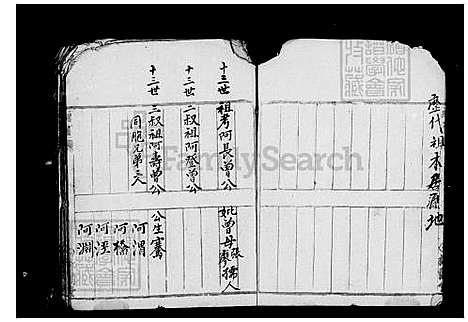 歷代祖本居廟地
十三世 祖考阿長曾公
妣曾母張廖孺人
十三世 二叔祖阿登曾公
十三世 三叔祖阿壽曾公
同胞兄弟三人
公生騫
阿渭
阿橋
阿涇
阿淵
FamilySearch